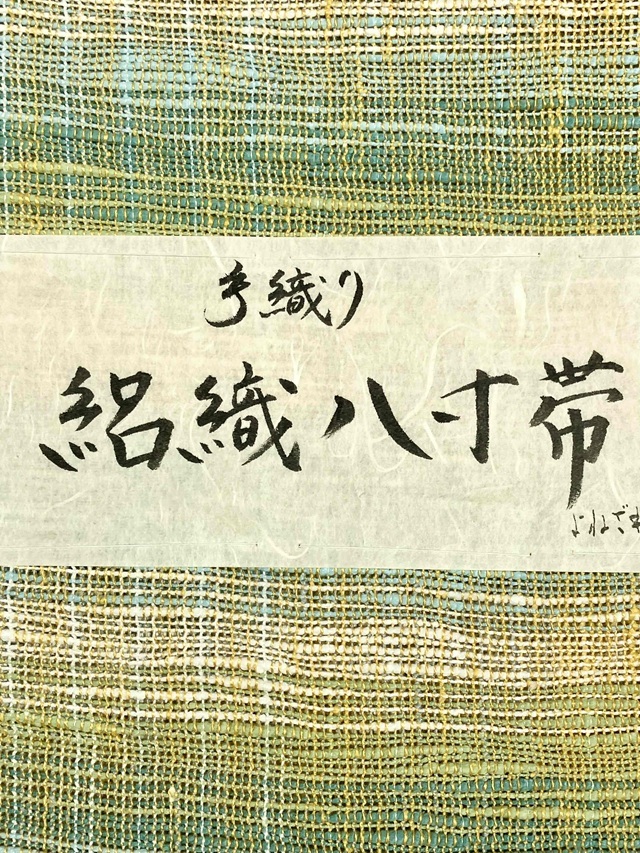 手織り
絽織八寸帯
よねざ